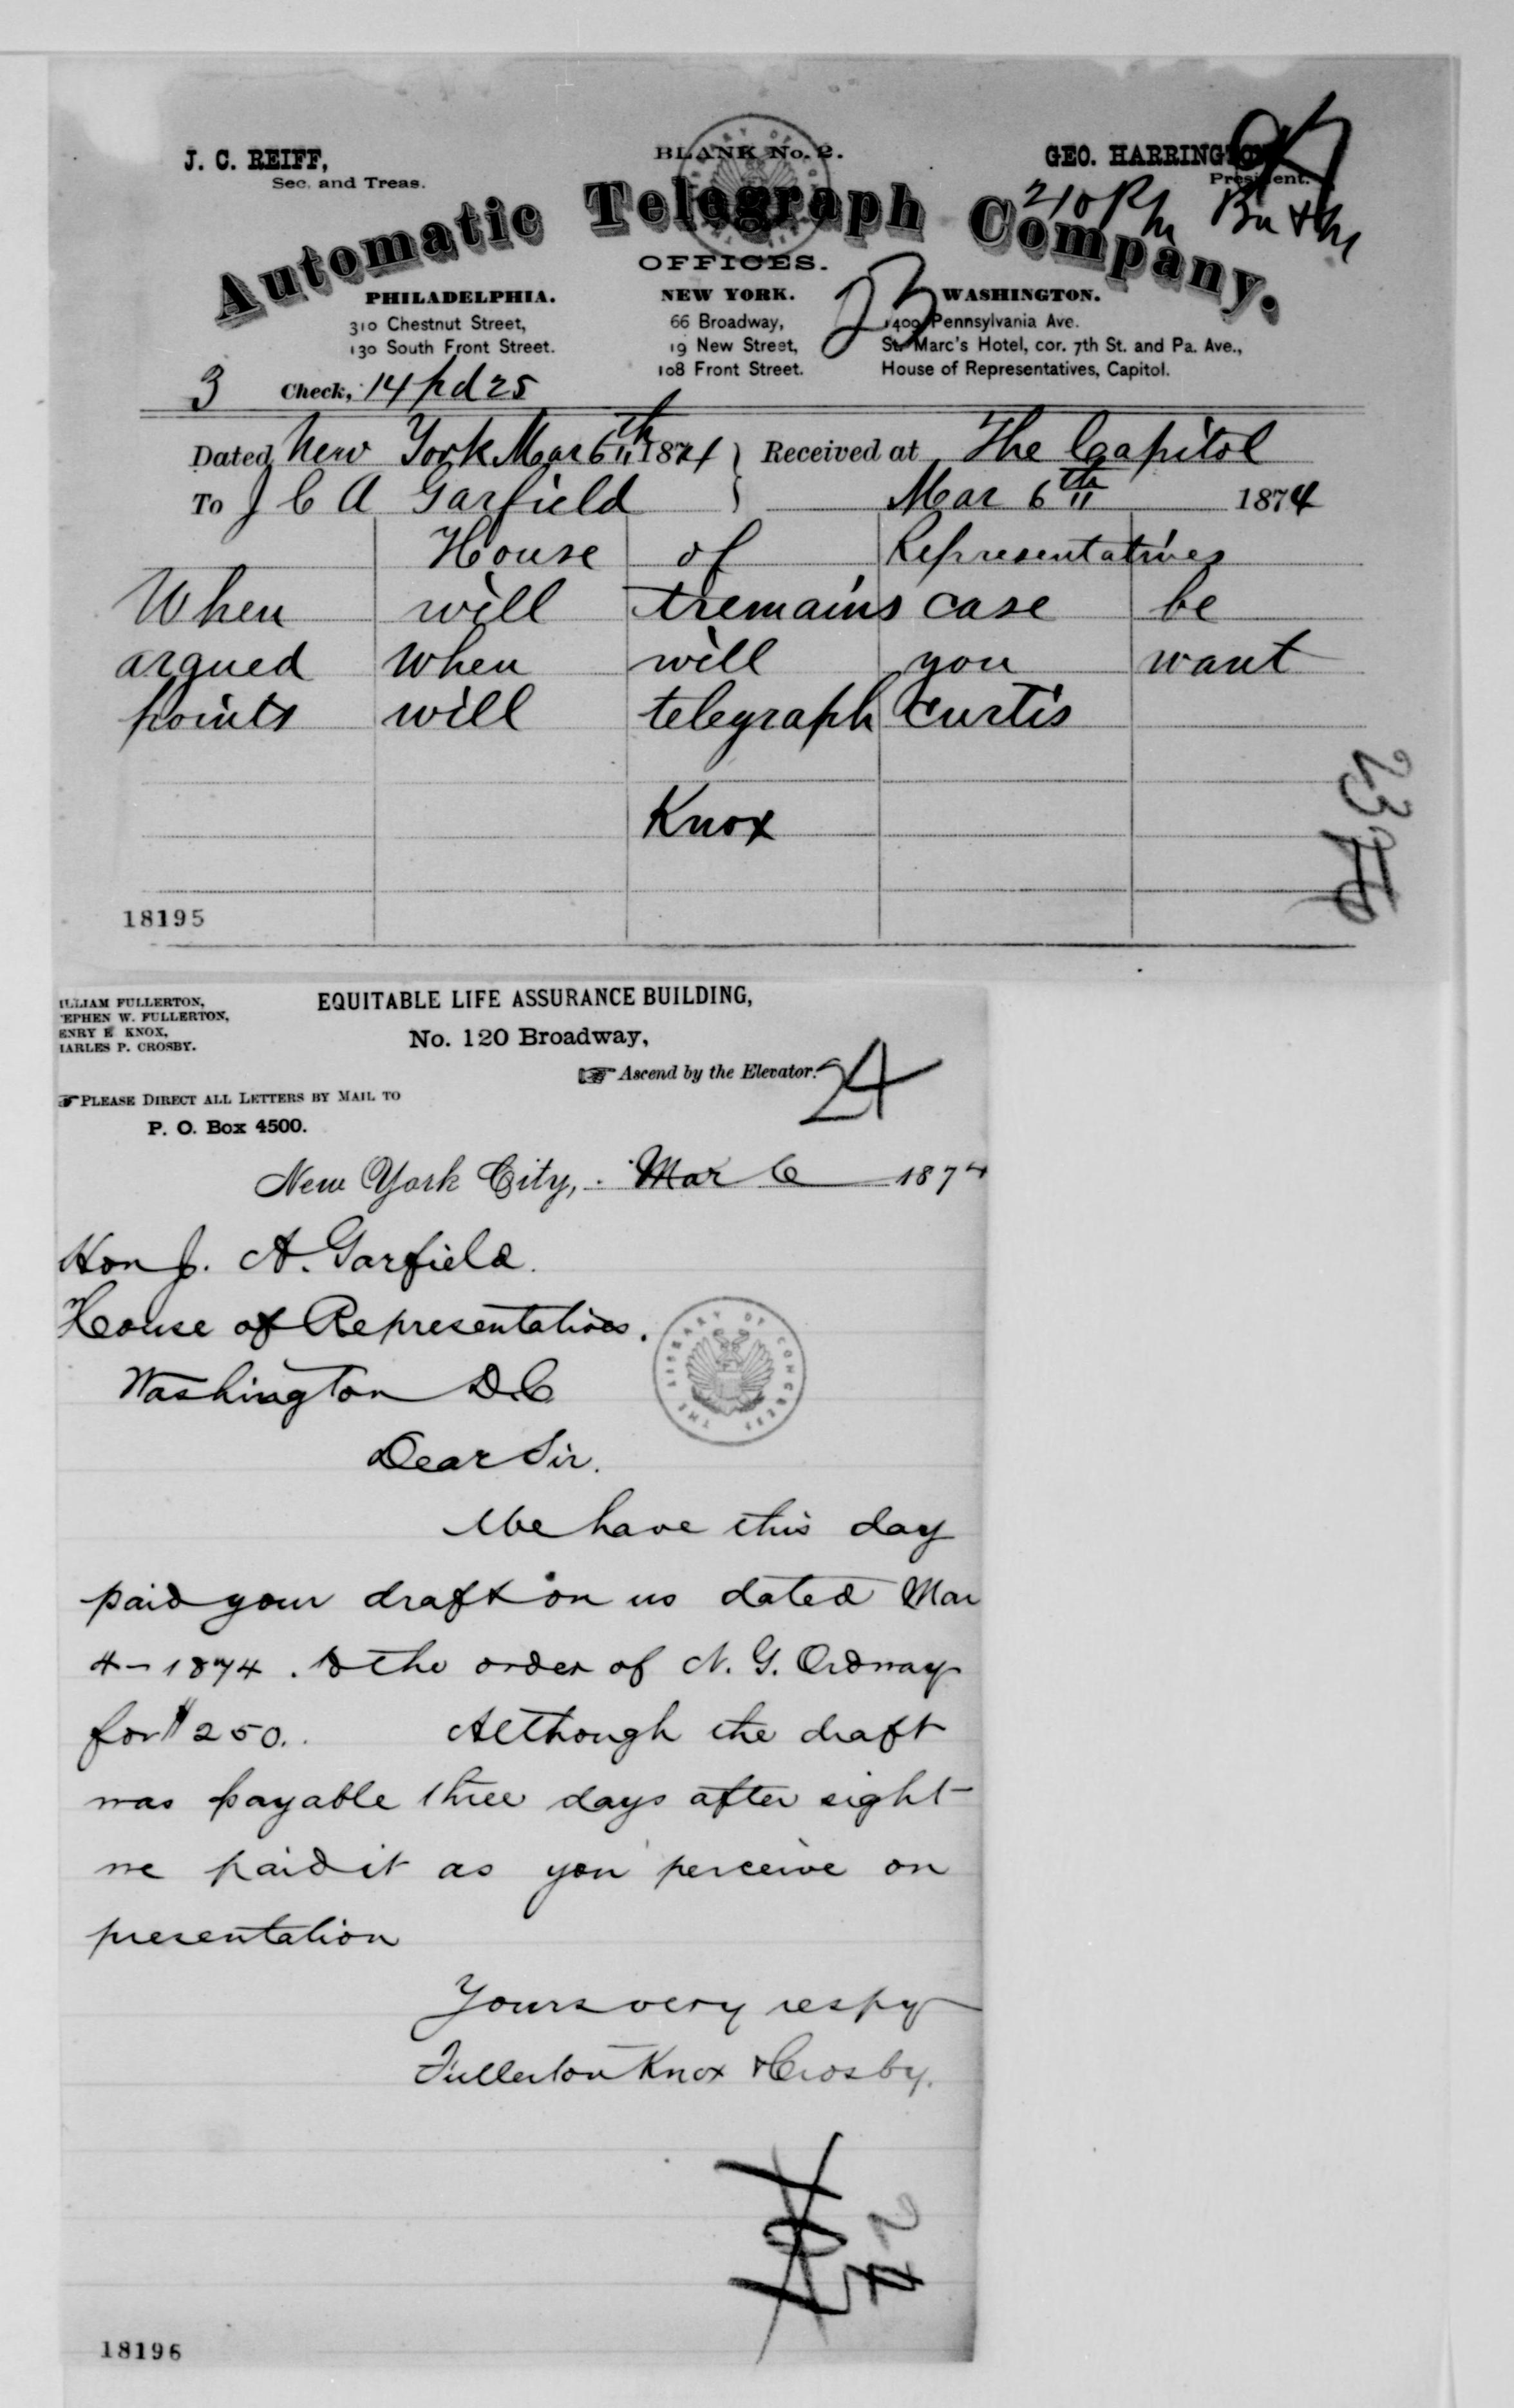 J. C. REIFF,
Sec. and Treas.
BLANK No. 2.
GEO. HARRINGTON
President.
210 Pm
Automatic Telegraph Company.
OFFICES.
23
PHILADELPHIA.
310 Chestnut Street,
130 South Front Street.
NEW YORK.
66 Broadway,
19 New Street,
108 Front Street.
WASHINGTON.
1409 Pennsylvania Ave.
St. Marc's Hotel, cor. 7th St. and Pa. Ave.,
House of Representatives, Capitol.
3 Check, 14 pd 25
Dated New York Mar 6th 1874 } Received at The Capitol
To J C A Garfield Mar 6th 1874
House of Representatives
When will tremains case be
argued when will you want
points will telegraph Curtis
Knox
23
18195
ILLIAM FULLERTON,
EPHEN W. FULLERTON,
ENRY E KNOX,
HARLES P. CROSBY.
EQUITABLE LIFE ASSURANCE BUILDING,
No. 120 Broadway,
Ascend by the Elevator.
24
PLEASE DIRECT ALL LETTERS BY MAIL TO
P. O. Box 4500.
New York City, Mar 6 1874
Hon J. A. Garfield.
House of Representatives.
Washington D.C
THE LIBRARY OF CONGRESS
Dear Sir.
We have this day
paid your draft on us dated Mar
4 - 1874. to the order of N. G. Ordway
for $250.. Although the draft
was payable three days after sight
we paid it as you perceive on
presentation
Yours very respy
Fullerton Knox & Crosby.
24
18196